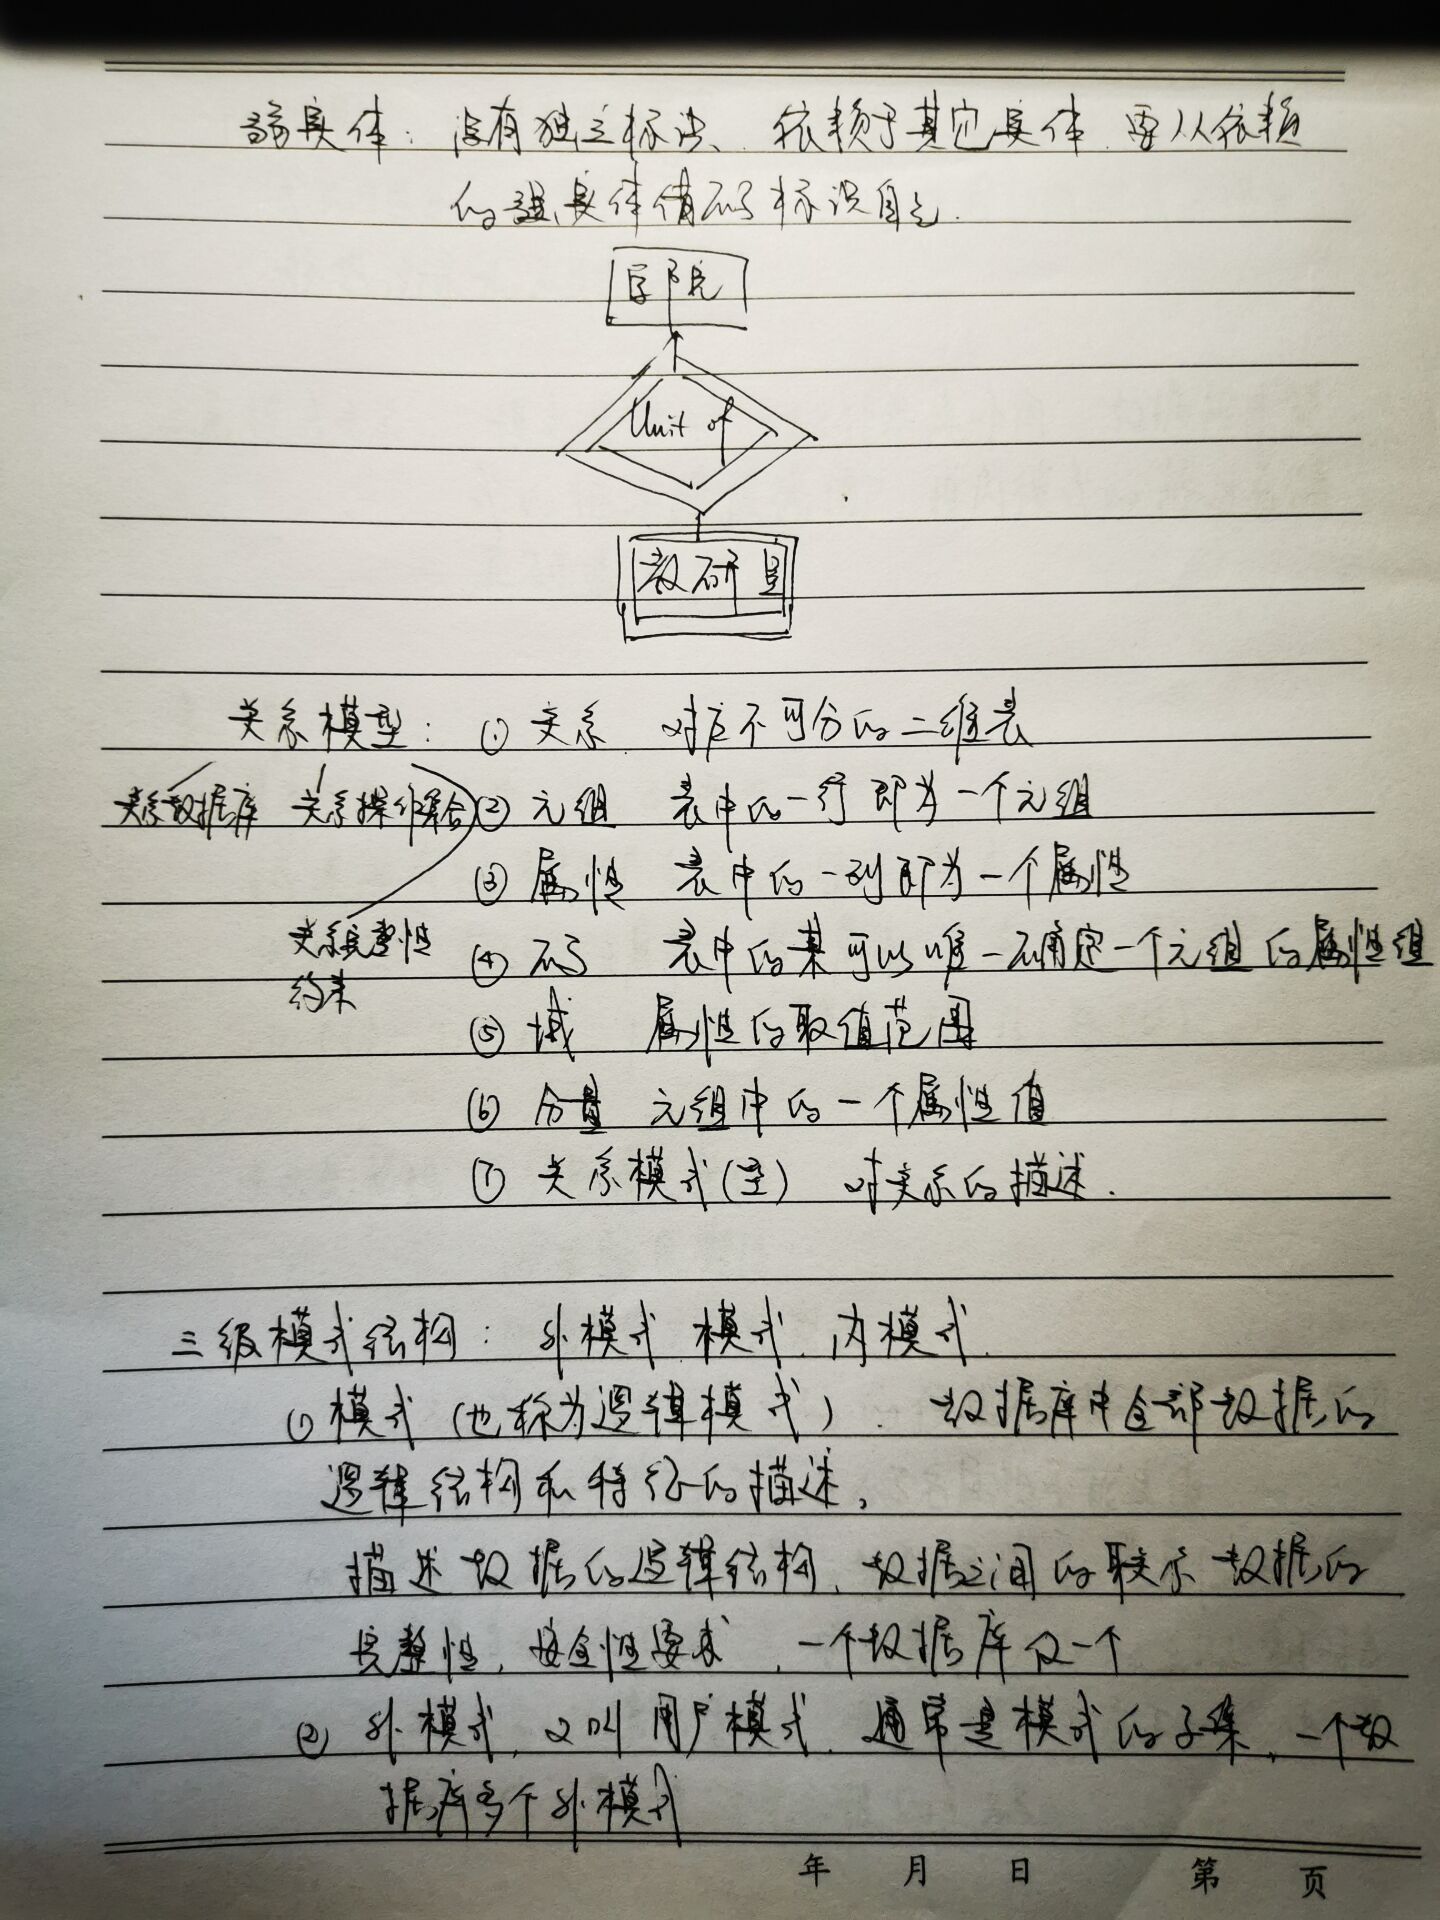 弱实体：没有独立标识、依赖于其它实体、要从依赖
的强实体借码标识自己.
学院
Unit of
教研室
关系模型：① 关系 对应不可分的二维表
关系数据库 关系操作集合 ② 元组 表中的一行即为一个元组
③ 属性 表中的一列即为一个属性
关系完整性
约束
④ 码 表中的某可以唯一确定一个元组的属性组
⑤ 域 属性的取值范围
⑥ 分量 元组中的一个属性值
⑦ 关系模式(型) 对关系的描述.
三级模式结构：外模式 模式、内模式.
① 模式（也称为逻辑模式）. 数据库中全部数据的
逻辑结构和特征的描述,
描述数据的逻辑结构、数据之间的联系 数据的
完整性,安全性要求 , 一个数据库仅一个
② 外模式, 又叫用户模式、通常是模式的子集、一个数
据库多个外模式
年 月 日 第 页